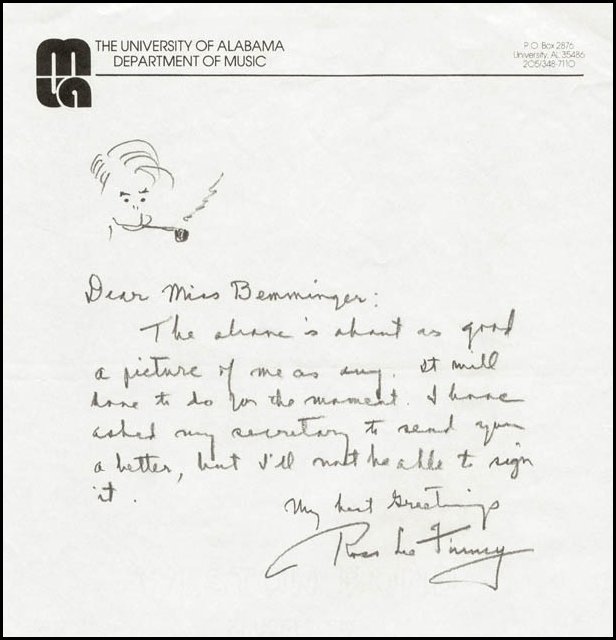 mta
THE UNIVERSITY OF ALABAMA
DEPARTMENT OF MUSIC
P.O. Box 2876
University, AL 35486
205/348-7110
Dear Miss Bemminger:
The above is about as good
a picture of me as any. It will
have to do for the moment. I have
asked my secretary to send you
a better, but I'll not be able to sign
it.
My best Greetings
Ross Lee Finney